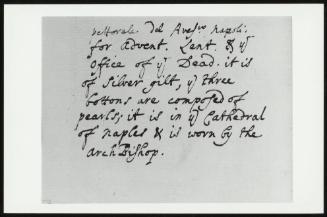 pettorale. Del Aves.vo Napoli:
for Advent. Lent. & ye
office of ye Dead. it is
of Silver gilt, ye three
bottons are composed of
pearls; it is in ye Cathedral
of Naples & is worn by the
arch Bishop.